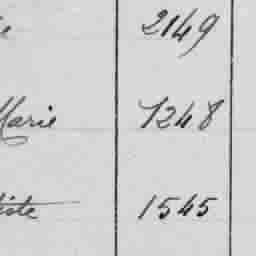 e 2149
Marie 1248
iste 1545